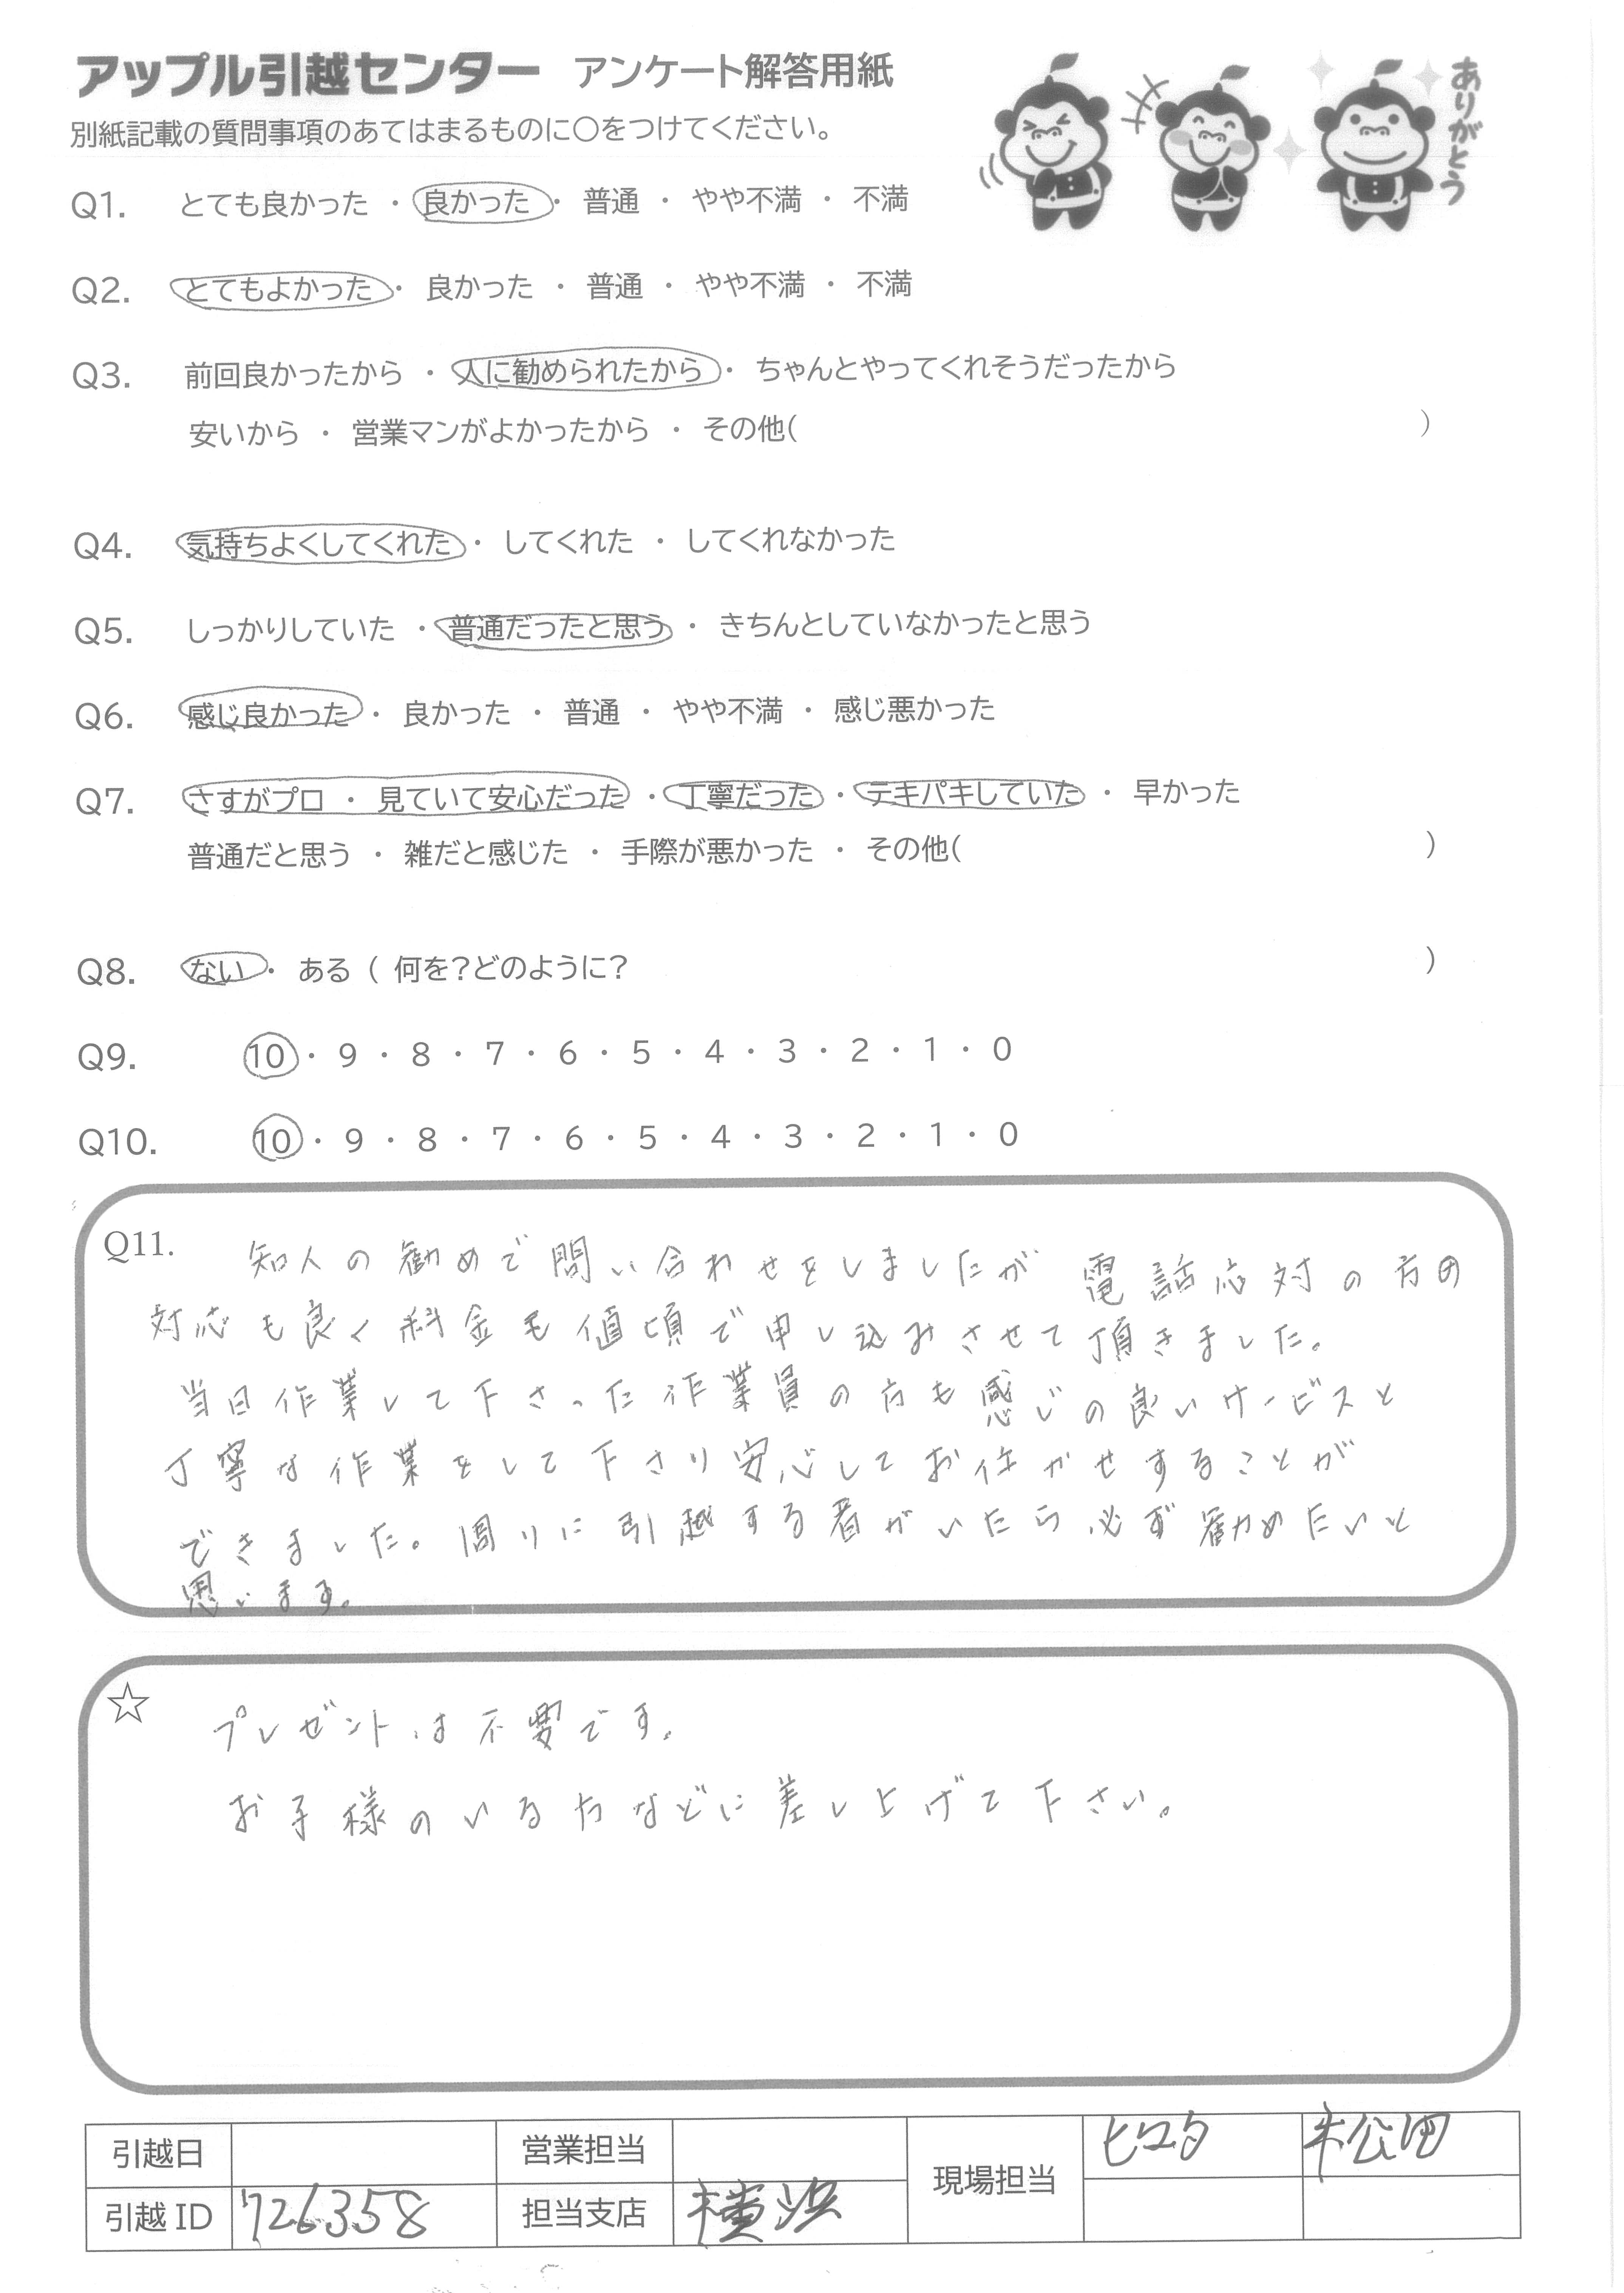 アップル引越センター アンケート解答用紙
ありがとう
別紙記載の質問事項のあてはまるものに○をつけてください。
Q1. とても良かった ・ 良かった ・ 普通 ・ やや不満 ・ 不満
Q2. とてもよかった ・ 良かった ・ 普通 ・ やや不満 ・ 不満
Q3. 前回良かったから ・ 人に勧められたから ・ ちゃんとやってくれそうだったから
安いから ・ 営業マンがよかったから ・ その他( )
Q4. 気持ちよくしてくれた ・ してくれた ・ してくれなかった
Q5. しっかりしていた ・ 普通だったと思う ・ きちんとしていなかったと思う
Q6. 感じ良かった ・ 良かった ・ 普通 ・ やや不満 ・ 感じ悪かった
Q7. さすがプロ ・ 見ていて安心だった ・ 丁寧だった ・ テキパキしていた ・ 早かった
普通だと思う ・ 雑だと感じた ・ 手際が悪かった ・ その他( )
Q8. ない ・ ある ( 何を?どのように? )
Q9. 10 ・ 9 ・ 8 ・ 7 ・ 6 ・ 5 ・ 4 ・ 3 ・ 2 ・ 1 ・ 0
Q10. 10 ・ 9 ・ 8 ・ 7 ・ 6 ・ 5 ・ 4 ・ 3 ・ 2 ・ 1 ・ 0
Q11. 知人の勧めで問い合わせをしましたが 電話応対の方の
対応も良く料金も値頃で申し込みさせて頂きました。
当日作業して下さった作業員の方も感じの良いサービスと
丁寧な作業をして下さり安心してお任かせすることが
できました。周りに引越する者がいたら必ず勧めたいと
思います。
☆ プレゼントは不要です。
お子様のいる方などに差し上げて下さい。
引越日 営業担当 現場担当 ヒロタ 松田
引越ID 726358 担当支店 横浜